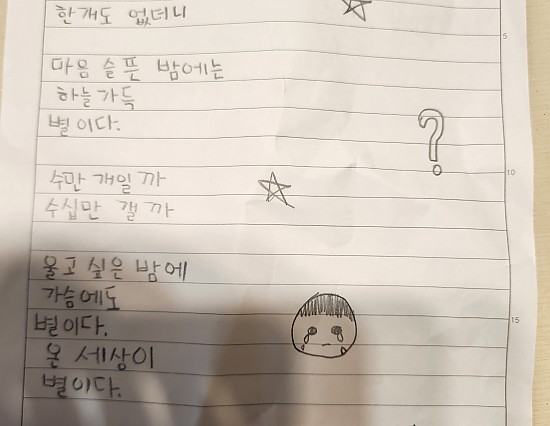 한개도 없더니
5
마음 슬픈 밤에는
하늘가득
별이다.
?
10
수만 개일까
수십만 갤까
울고 싶은 밤에
가슴에도
별이다.
15
온 세상이
별이다.